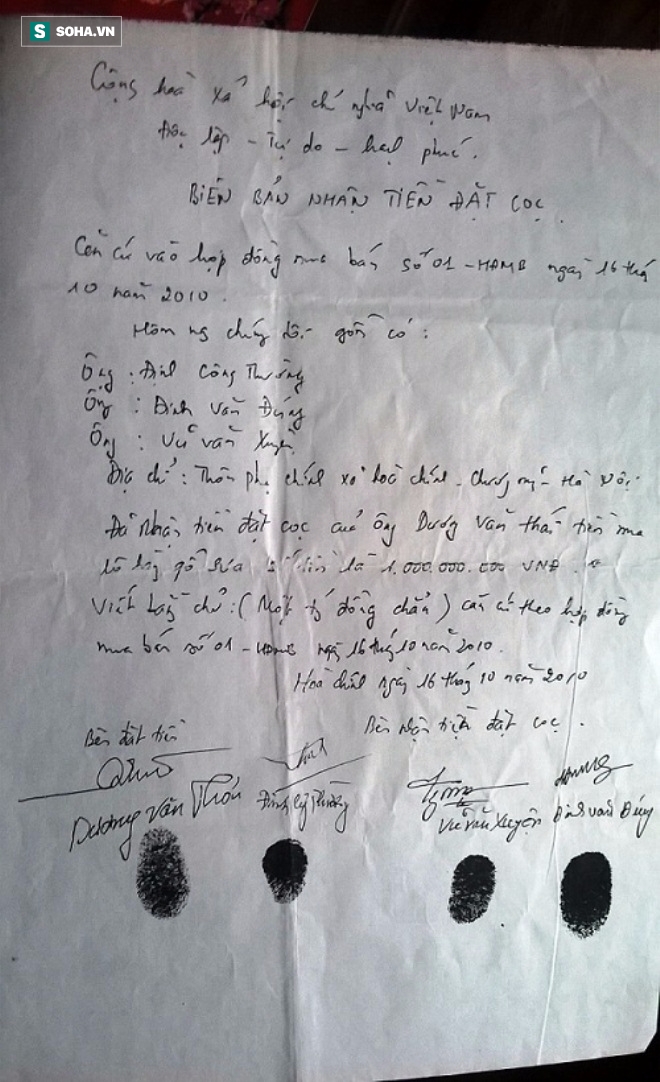 SOHA.VN
Cộng hoà xã hội chủ nghĩa Việt Nam
Độc lập - Tự do - hạnh phúc.
BIÊN BẢN NHẬN TIỀN ĐẶT CỌC.
Căn cứ vào hợp đồng mua bán số 01 - HĐMB ngày 16 tháng
10 năm 2010.
Hôm nay chúng tôi gồm có:
Ông : Đinh Công Thường
Ông : Đinh Văn Đúng
Ông : Vũ Văn Xuyện
Địa chỉ: Thôn phụ chính xã hoà chính - Chương mỹ - Hà Nội
Đã nhận tiền đặt cọc của ông Dương Văn thái tiền mua
lô hàng gỗ sưa, số tiền là 1.000.000.000 VNĐ.
Viết bằng chữ: (Một tỷ đồng chẵn) căn cứ theo hợp đồng
mua bán số 01 - HĐMB ngày 16 tháng 10 năm 2010.
Hoà chính ngày 16 tháng 10 năm 2010
Bên đặt tiền
Bên nhận tiền đặt cọc.
Dương Văn Thái
Đinh Công Thường
Vũ Văn Xuyện
Đinh Văn Đúng